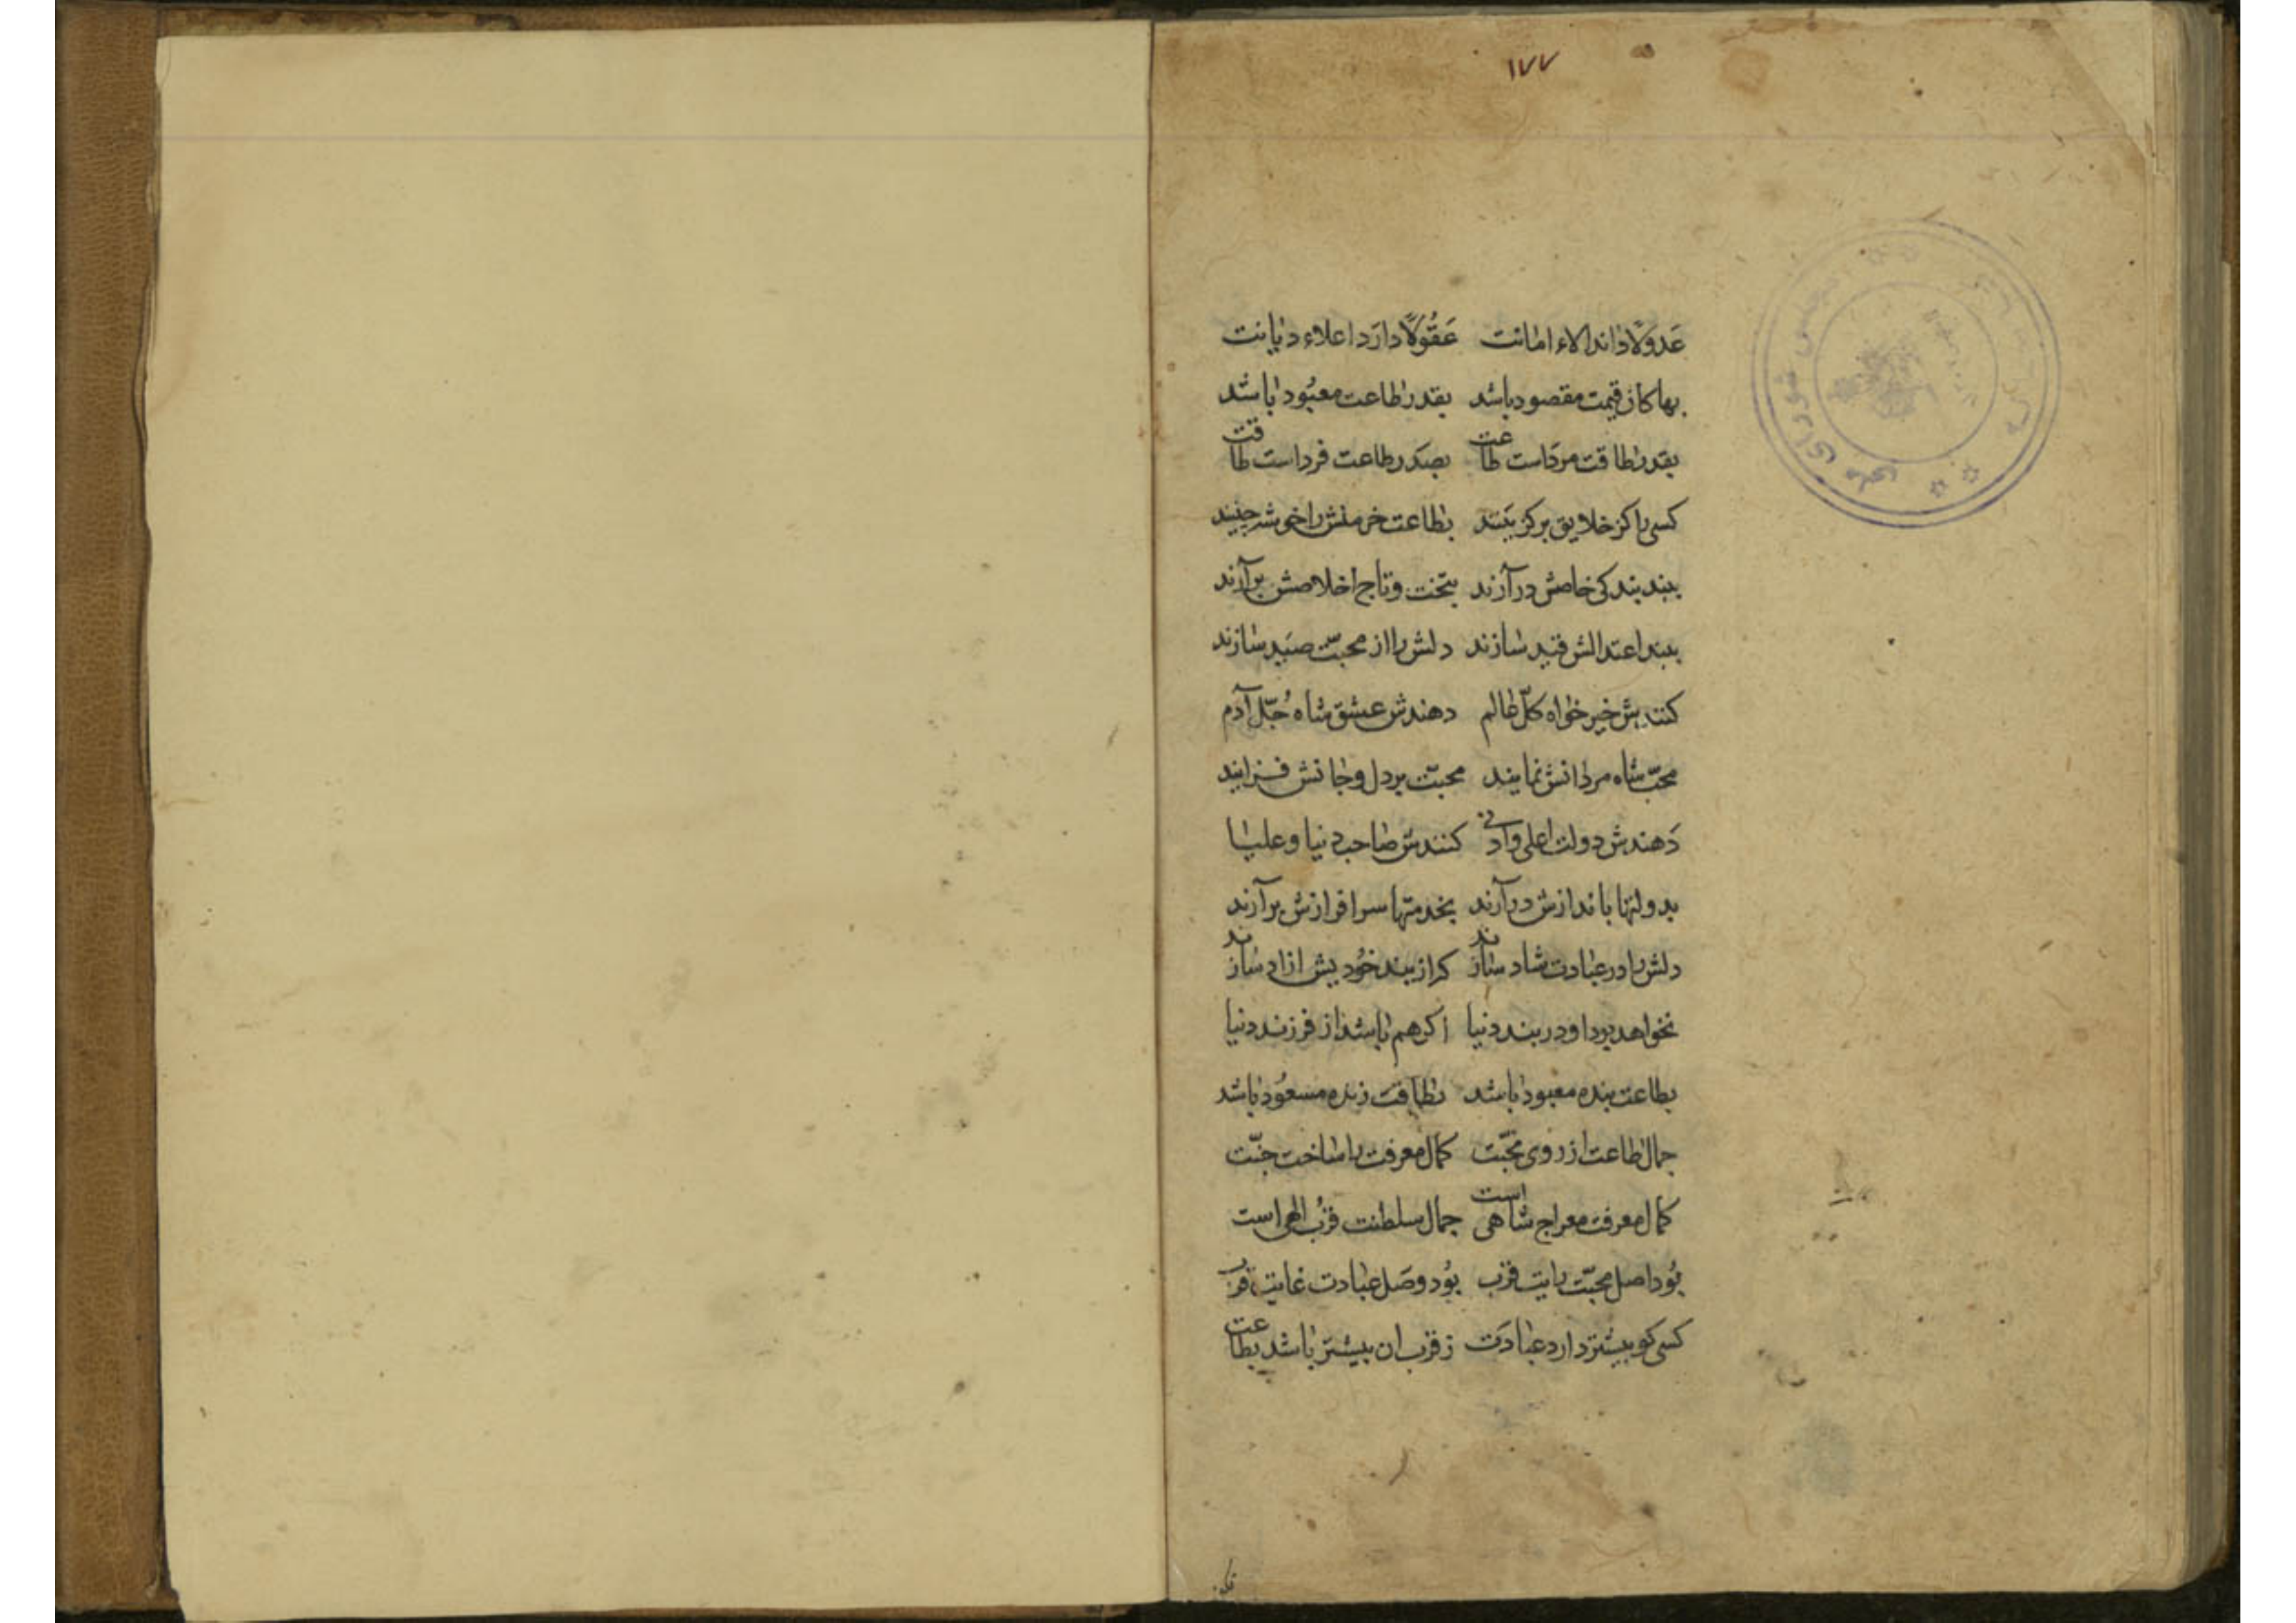 ۱۷۷
عَدولًا داند الاء امانت عَقُولًا دارَد اعلاء دیانت
بها کاز قیمت مقصود باشد بقدر طاعت معبُود باشد
بقدر طاقت مرد است طاعت بصَد رطاعت فرد است طاقت
کسی را کز خلایق برگزینند بطاعت خرمنش را خوشه چینند
ببند بندکی خاصش درآرند بتخت و تاج اخلاصش برآرند
ببند اعتدالش قید سازند دلش را از محبّت صَید سازند
کنندش خیر خواه کلّ عالم دهندش عشق شاه جُلّ آدم
محبّ شاه مردانش نمایند محبّت بر دل و جانش فزایند
دَهندش دولت اعلی و ادنی کنندش صاحب دنیا و علیا
بدولتها باندازش درآرند بخدمتها سرافرازش برآرند
دلش را در عبادت شاد سازند که از بند خُودیش ازاد سازند
نخواهد بود او در بند دنیا اگر هم باشد از فرزند دنیا
بطاعت بنده معبود باشد بطاقت زنده مسعُود باشد
جمال طاعت از روی محبّت کمال معرفت را ساخت جنّت
کمال معرفت معراج شاهی است جمال سلطنت قرُب الهی است
بُود اصل محبّت رایت قرب بُود وصَل عبادت غایت قرب
کسی کو بیشتر دارد عبادَت ز قرب ان بیشتر باشد بطاعت
شورای ملی